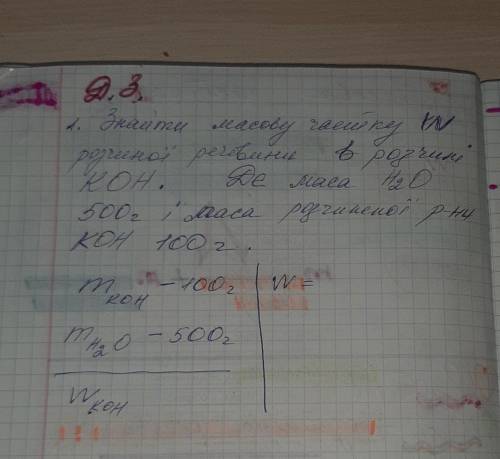 Д.З.
1. Знайти масову частку W
розчиної речовини в розчині
KOH. Де маса H2O
500г і маса розчиненої р-ни
KOH 100г.
mKOH - 100г W=
mH2O - 500г
WKOH